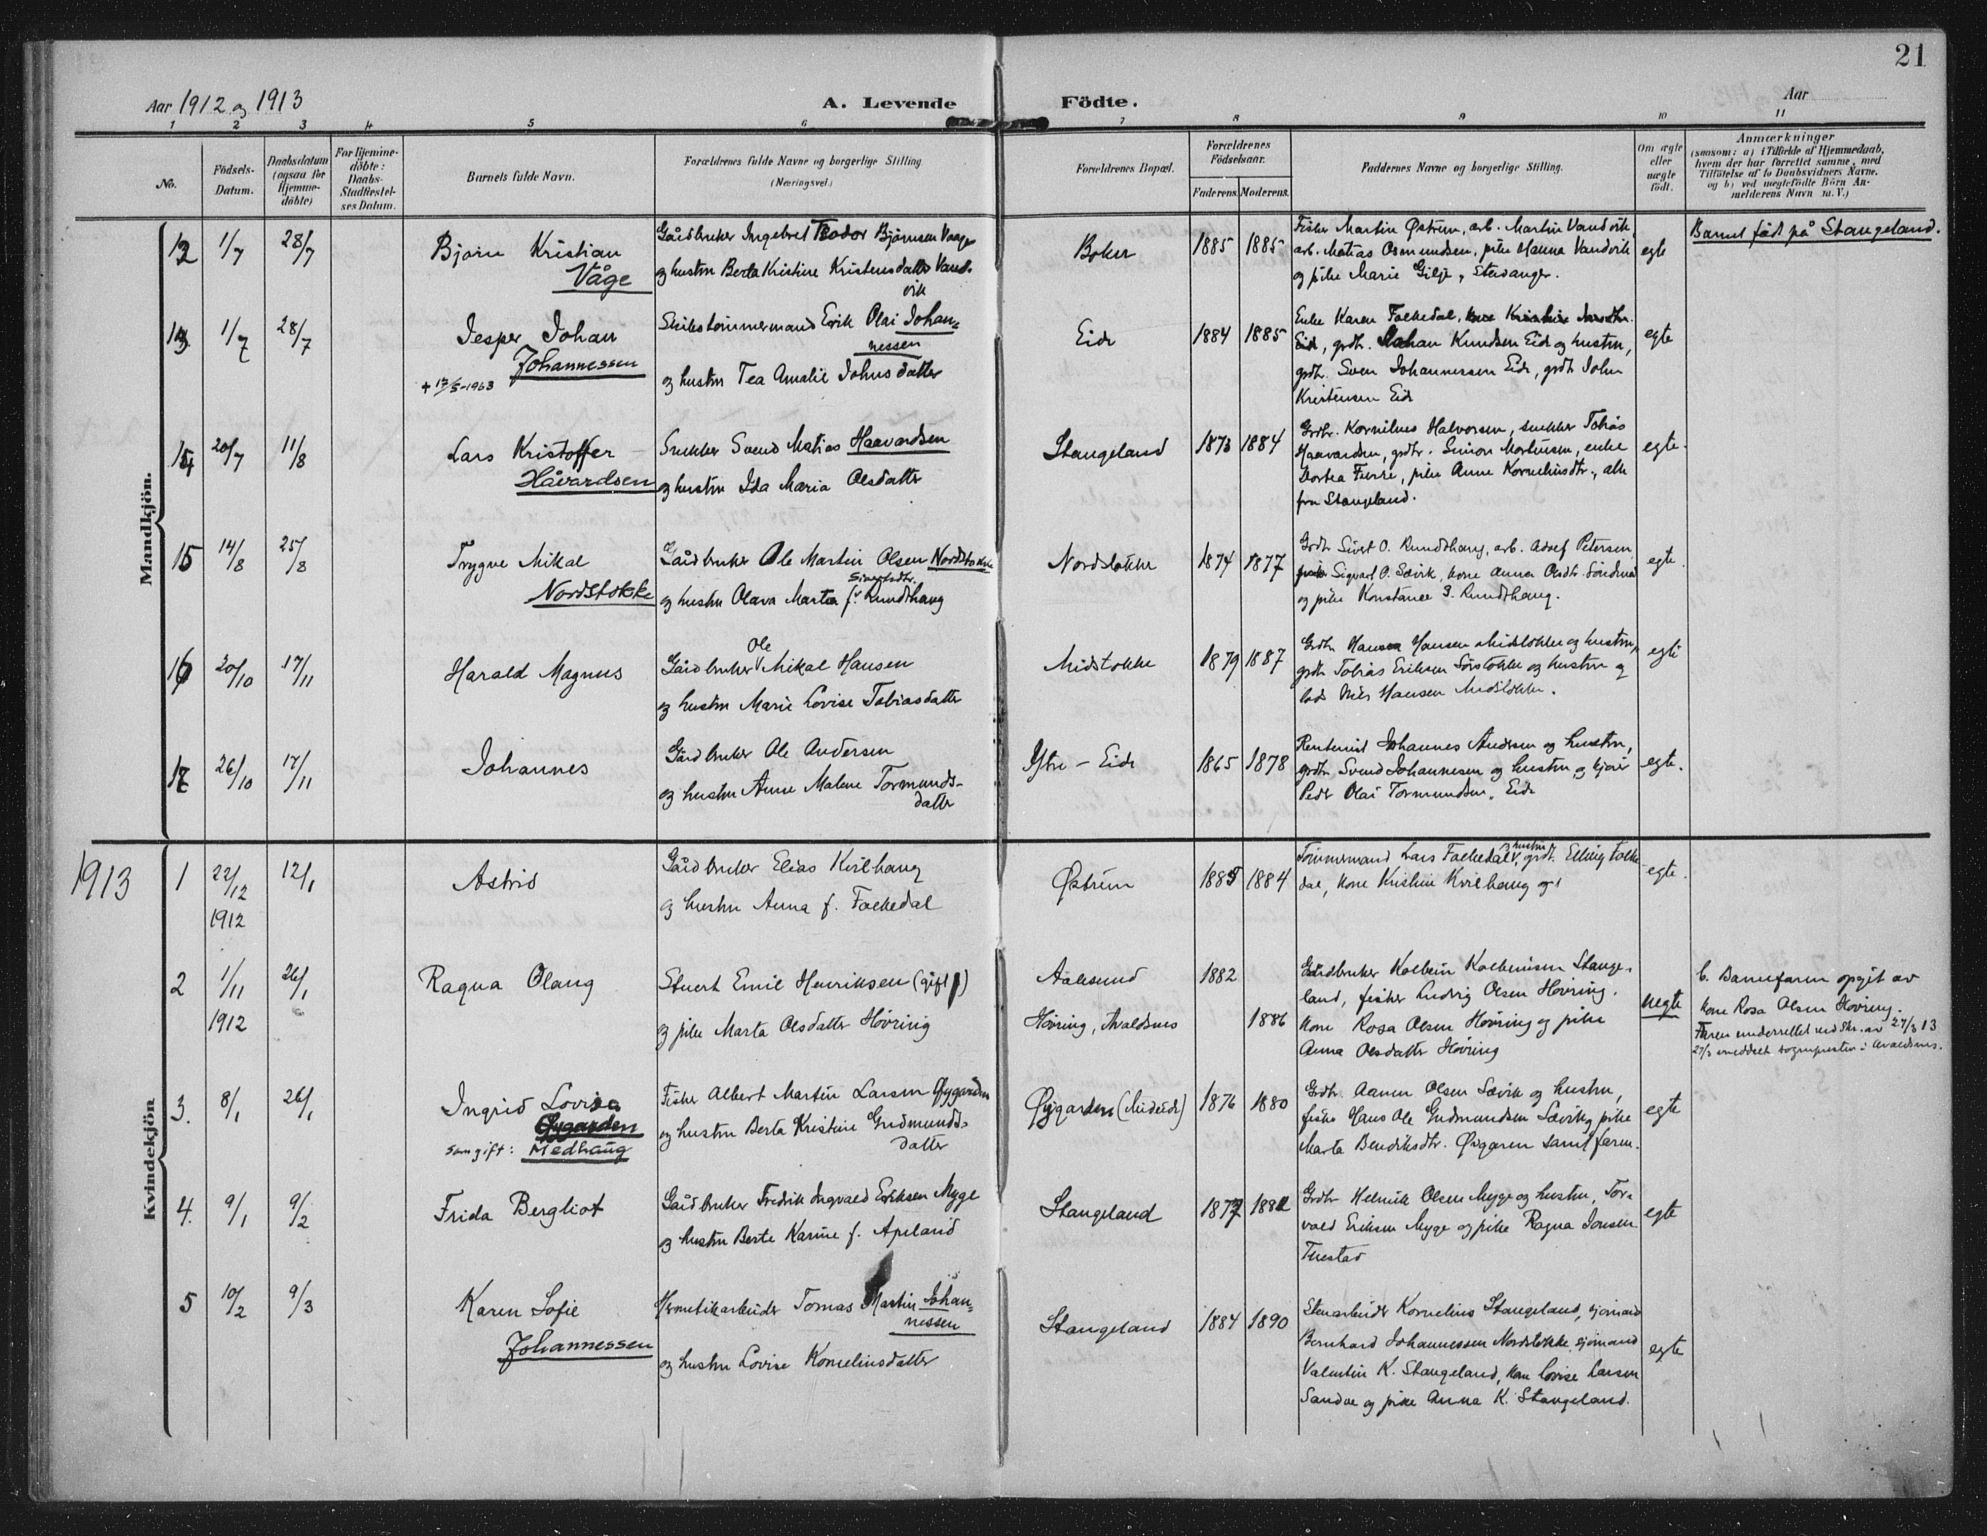 21
Aar 1912 og 1913
A. Levende Födte.
Aar
1 2 3 4 5 6 7 8 9 10 11
No.
Födsels-
Datum.
Daabsdatum
(ogsaa for
Hjemme-
döbte)
For Hjemme-
döbte:
Daabs-
Stadfæstel-
ses Datum.
Barnets fulde Navn.
Forældrenes fulde Navne og borgerlige Stilling
(Næringsvei.)
Forældrenes Bopæl.
Forældrenes
Födselsaar.
Faderens. Moderens.
Faddernes Navne og borgerlige Stilling.
Om ægte
eller
uægte
født.
Anmærkninger
(saasom: a) i Tilfælde af Hjemmedaab,
hvem der har forrettet samme, med
Tilföielse af to Daabsvidners Navne,
og b) ved uægtefödte Börn An-
melderens Navn m. V.)
Mandkjön.
12 1/7 28/7
Bjørn Kristian
Våge
Gårdbruker Ingebret Teodor Bjørnsen Vaage
og hustru Berta Kristine Kristensdatter Vand-
vik
Bokn
1885 1885
Fisker Martin Østrem, arb. Martin Vandvik,
arb. Matias Osmundsen, pike Hanna Vandvik
og pike Marie Gilje, Stavanger.
egte
Barnet født på Stangeland.
13 1/7 28/7
Jesper Johan
Johannessen
+ 17/5-1963
Skibstømmermand Erik Olai Johan-
nessen
og hustru Tea Amalie Johnsdatter
Eide
1884 1885
Enke Karen Falkedal, Kristine
Eide, grdbr. Johan Knudsen Eide og hustru,
grdbr. Sven Johannessen Eide, grdbr John
Kristensen Eide
egte
14 20/7 11/8
Lars Kristoffer
Håvardsen
Snekker Svend Matias Haavardsen
og hustru Ida Maria Olsdatter
Stangeland
1873 1884
Grdbr. Kornilius Halvorsen, snekker Tobias
Haavardsen, grdbr. Simon Mortensen, enke
Dortea Ferre, pike Anne Korneliusdtr., alle
fra Stangeland.
egte.
15 14/8 25/8
Trygve Mikal
Nordstokke
Gårdbruker Ole Martin Olsen Nordstokke
Sivertsdtr.
og hustru Olava Marta f. Rundhaug
Nordstokke
1874 1877
Grdbr Sivert O. Rundhaug, arb. Adolf Petersen
Sigvart O. Sævik, kone Anna Olsdtr.
og pike Konstance S. Rundhaug.
egte.
16 20/10 17/11
Harald Magnus
Ole
Gårdbruker Mikal Hansen
og hustru Marie Lovise Tobiasdatter
Midstokke
1879 1887
Grdbr Hans Hansen Midstokke og hustru,
grdbr Tobias Eriksen Sørstokke og hustru og
lods Nils Hansen Midstokke.
egte
17 26/10 17/11
Johannes
Gårdbruker Ole Andersen
og hustru Anne Malene Tormunds-
datter
Ytre - Eide
1865 1878
Rentenist Johannes Andersen og hustru,
grdbr Svend Johannesen og hustru, og
Peder Olai Tormundsen, Eide
egte.
1913
Kvindekjön
1 22/12 1912 12/1
Astrid
Gårdbruker Elias Kvilhaug
og hustru Anna f. Falkedal
Østrem
1885 1884
og hustru
Tømmermand Lars Falkedal, grdbr. Elling Falke-
dal, kone Kristine Kvilhaug og
egte.
2 1/11 1912 26/1
Ragna Olaug
Stuert Emil Henriksen (gift)
og pike Marta Olsdatter Høvring
Aalesund
Høvring, Avaldsnes
1882
1886
Gårdbruker Kolbein Kolbeinsen Stange-
land, fisker Ludvig Olsen Høvring.
kone Rosa Olsen Høvring og pike
Anna Olsdatter Høvring
uegte
b. Barnefaren opgit av
kone Rosa Olsen Høvring.
Faren underrettet ved skr. av 27/3 13
27/3 meddelt sognepresten i Avaldsnes.
3. 8/1 26/1
Ingrid Lovise
Øygarden
som gift: Medhaug
Fisker Albert Martin Larsen Øygarden
og hustru Berta Kristine Gudmunds-
datter
Øygarden (Mideide)
1876 1880
Grdbr. Aanen Olsen Sævik og hustru,
fisker Hans Ole Gudmundsen Sævik, pike
Marta Bendiksdtr. Øigaren samt faren.
egte
4. 9/1 9/2
Frida Bergliot
Gårdbruker Fredrik Ingvald Eriksen Myge
og hustru Berte Karine f. Apeland
Stangeland
1877 1882
Grdbr Helmik Olsen Myge og hustru, Tor-
vald Eriksen Myge og pike Ragna Jonsen
Tuestad
egte
5 10/2 9/3
Karen Sofie
Johannessen
Hermetikarbeider Tomas Martin Johan-
nessen
og hustru Lovise Korneliusdatter
Stangeland
1884 1890
Stenarbeider Kornelius Stangeland, sjømand
Bernhard Johannessen Nordstokke, sjømand
Valentin K. Stangeland, kone Lovise Larsen
Sandve og pike Anna K. Stangeland.
egte